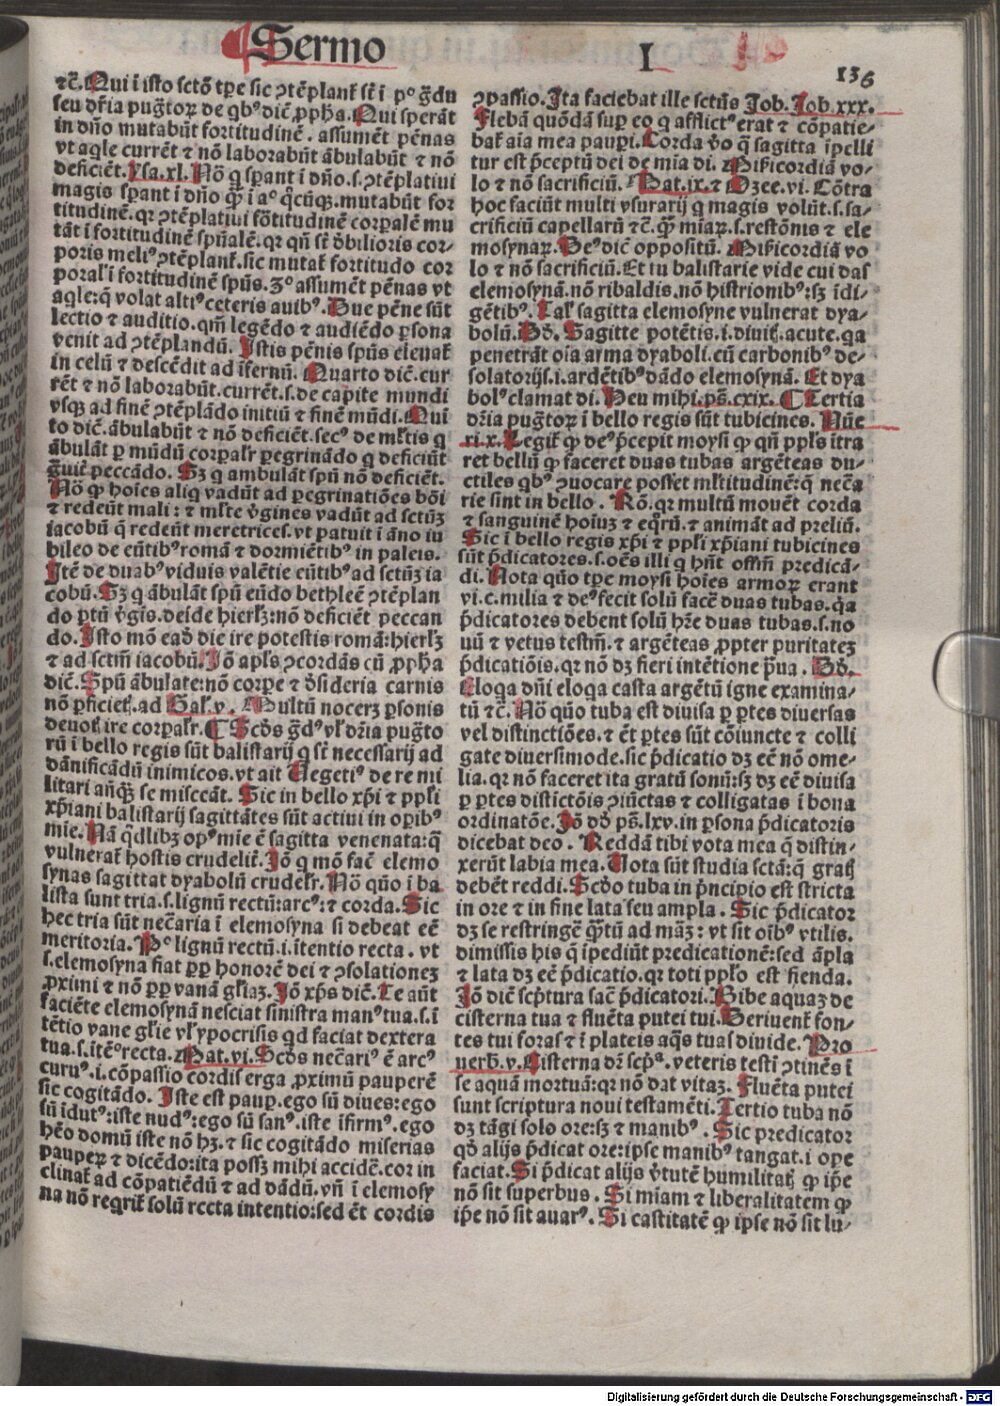 Sermo I
136
⁊c̃. Qui ĩ isto sctõ tp̃e sic ↄtẽplant̃ sũt ĩ p° g̃du
seu dr̃ia pug̃toꝝ de qb⁹ dic̃ ꝓpħa. Qui sperãt
in dño mutabũt fortitudinẽ. assumẽt pẽnas
vt aq̃le currẽt ⁊ nõ laborabũt ãbulabũt ⁊ nõ
deficiẽt. ysa.xl. Nõ q̃ spant ĩ dño.s.ↄtẽplatiui
magis sperant ĩ dño q̃ ĩ a° q̃cũqꝫ.mutabũt for
titudinẽ.qꝛ ↄtẽplatiui fõtitudinẽ corꝑalẽ mu
tãt ĩ fortitudinẽ spũalẽ.qꝛ qñ sũt d̃bilioris cor⸗
poris meli⁹ ↄtẽplant̃.sic mutat̃ fortitudo cor
poral̃ ĩ fortitudinẽ spũs. 3° assumẽt pẽnas vt
aq̃le:q̃ volat alti⁹ ceteris auib⁹. Due pẽne sũt
lectio ⁊ auditio.qm̃ legẽdo ⁊ audiẽdo ꝑsona
venit ad ↄtẽplandũ. Istis pẽnis spũs eleuat̃
in celũ ⁊ descẽdit ad ĩfernũ. Quarto dic̃.cur
rẽt ⁊ nõ laborabũt.currẽt.s.de capite mundi
vsqꝫ ad finẽ ↄtẽplãdo initiũ ⁊ finẽ mũdi. Qui
to dic̃.ãbulabũt ⁊ nõ deficiẽt.sec⁹ de ml̃tis q̃
ãbulãt ꝑ mũdũ corꝑalr̃ ꝑegrinãdo q̃ deficiũt
g̃uit̃ peccãdo. Sꝫ q̃ ambulãt spũ nõ deficiẽt.
Nõ ꝙ hoĩes aliq̃ vadũt ad ꝑegrinatiões bõi
⁊ redeũt mali: ⁊ ml̃te v̓gines vadũt ad sctũꝫ
iacobũ q̃ redeũt meretrices.vt patuit ĩ ãno iu
bileo de eũtib⁹ romã ⁊ dormiẽtib⁹ in paleis.
Itẽ de duab⁹ viduis valẽtie eũtib⁹ ad sctũꝫ ia
cobũ. Sꝫ q̃ ãbulãt spũ eũdo bethleẽ ↄtẽplan
do ꝑtũ v̓gis.deĩde hierłꝫ:nõ deficiẽt peccan
do. Isto mõ eadẽ die ire potestis romã:hierłꝫ
⁊ ad sctm̃ iacobũ. Iõ apl̃s ↄcordãs cũ ꝓpħa
dic̃. Spũ ãbulate:nõ corꝑe ⁊ d̓sideria carnis
nõ ꝑficiet̃.ad Gal̃.v. Multũ nocerꝫ ꝑsonis
deuot̃ ire corꝑalr̃. ¶ Scd̓s g̃d⁹ vl̃ dr̃ia pug̃to
rũ ĩ bello regis sũt balistarij q̃ sũt necessarij ad
dãnificãdũ inimicos.vt ait Uegeti⁹ de re mi
litari añq̃ꝫ se misceãt. Sic in bello xp̃i ⁊ ppl̃i
xp̃iani balistarij sagittãtes sũt actiui in oꝑib⁹
mie. Nã q̃dlibꝫ op⁹ mie ẽ sagitta venenata:q̃
vulnerat̃ hostis crudelit̃. Iõ q̃ mõ fac̃ elemo
synas sagittat dyabolũ crudelr̃. Nõ qño ĩ ba
lista sunt tria.s.lignũ rectũ:arc⁹: ⁊ corda. Sic
hec tria sũt nec̃aria ĩ elemosyna si debeat eẽ
meritoria. P° lignũ rectũ.i.ĩtentio recta. vt
s.elemosyna fiat ꝓp̃ honorẽ dei ⁊ ↄsolationeꝫ
ꝓximi ⁊ nõ ꝓp̃ vanã gl̃iaꝫ. Iõ xp̃s dic̃. Te aũt
faciẽte elemosynã nesciat sinistra man⁹ tua.s.ĩ
tẽtio vane gl̃ie vl̃ ypocrisis qd faciat dextera
tua.s.ĩtẽ°recta. Mat.vi. Scd̓s nec̃ari⁹ ẽ arc⁹
curu⁹.i.cõpassio cordis erga ꝓximũ pauperẽ
sic cogitãdo. Iste est paup̃.ego sũ diues:ego
sũ idut⁹:iste nud⁹:ego sũ san⁹.iste ĩfirm⁹.ego
hẽo domũ iste nõ hꝫ. ⁊ sic cogitãdo miserias
pauperꝝ ⁊ dicẽdo:ita possꝫ mihi accidẽ.cor in
clinat̃ ad cõpatiẽdũ ⁊ ad dãdũ.vñ ĩ elemosy
na nõ reqrit̃ solũ recta intentio:sed ẽt cordis
ↄpassio. Ita faciebat ille sctũs Job. Job.xxx.
Flebã quõdã sup eo q̃ afflict⁹ erat ⁊ cõpatie⸗
bat̃ aĩa mea paupi. Corda v̓o q̃ sagitta ĩpelli
tur est p̃ceptũ dei de mĩa di. Misericordiã vo⸗
lo ⁊ nõ sacrificiũ. Mat.ix. ⁊ Ozee.vi. Cõtra
hoc faciũt multi vsurarij q̃ magis volũt.s.sa⸗
crificiũ capellarũ ⁊c̃. q̃ꝫ mĩaꝝ.s.restõnis ⁊ ele
mosynaꝝ. De⁹ dic̃ oppositũ. Misericordiã vo
lo ⁊ nõ sacrificiũ. Et tu balistarie vide cui das
elemosynã.nõ ribaldis.nõ histrionib⁹:sꝫ ĩdi⸗
gẽtib⁹. Tal̃ sagitta elemosyne vulnerat dya⸗
bolũ. Pð. Sagitte potẽtis.i.diuit̃.acute.qa
penetrãt oĩa arma dyaboli.cũ carbonib⁹ de⸗
solatorijs.i.ardẽtib⁹ dãdo elemosynã. Et dya
bol⁹ clamat di. Heu mihi.ps̃.cxix. ¶ Tertia
dr̃ia pug̃toꝝ ĩ bello regis sũt tubicines. Nũe
ri.x. Legit̃ ꝙ de⁹ p̃cepit moysi ꝙ qñ ppl̃s ĩtra
ret bellũ ꝙ faceret duas tubas argẽteas du⸗
ctiles qb⁹ ↄuocare posset ml̃titudinẽ:q̃ nec̃a
rie sint in bello. Rõ.qꝛ multũ mouẽt corda
⁊ sanguinẽ hoĩuꝫ ⁊ eq̃rũ. ⁊ animãt ad preliũ.
Sic ĩ bello regis xp̃i ⁊ ppl̃i xp̃iani tubicines
sũt p̃dicatores.s.oẽs illi q̃ hñt offm̃ predicã⸗
di. Nota qño tp̃e moysi hoĩes armoꝝ erant
vi.c.milia ⁊ de⁹ fecit solũ facẽ duas tubas.q̃a
p̃dicatores debent solũ hr̃e duas tubas.s.no
uũ ⁊ vetus testm̃. ⁊ argẽteas ꝓpter puritateꝫ
p̃dicatiõis.qꝛ nõ dꝫ fieri intẽtione p̃ua. Pð.
Eloqa dñi eloqa casta argẽtũ igne examina⸗
tũ ⁊c̃. Nõ qño tuba est diuisa ꝑ ꝑtes diuersas
vel distinctiões. ⁊ ẽt ꝑtes sũt cõiuncte ⁊ colli
gate diuersimode.sic p̃dicatio dꝫ eẽ nõ ome⸗
lia.qꝛ nõ faceret ita gratũ sonũ:sꝫ dꝫ eẽ diuisa
ꝑ ꝑtes distictõis ↄiũctas ⁊ colligatas ĩ bona
ordinatõe. Iõ dð ps̃.lxv.in ꝑsona p̃dicatoris
dicebat deo. Reddã tibi vota mea q̃ distin⸗
xerũt labia mea. Uota sũt studia sctã:q̃ grat̃
debẽt reddi. Scd̓o tuba in p̃ncipio est stricta
in ore ⁊ in fine lata seu ampla. Sic p̃dicator
dꝫ se restringẽ q̃tũ ad mãꝫ: vt sit oĩb⁹ vtilis.
dimissis his q̃ ĩpediũt predicationẽ:sed ãpla
⁊ lata dꝫ eẽ p̃dicatio.qꝛ toti ppl̃o est fienda.
Iõ dic̃ scp̃tura sac̃ p̃dicatori. Bibe aquaꝫ de
cisterna tua ⁊ fluẽta putei tui. Deriuent̃ fon⸗
tes tui foras ⁊ ĩ plateis aq̃s tuas diuide. Pro
uerb.v. Cisterna dr̃ scp̃ª. veteris testi ↄtinẽs ĩ
se aquã mortuã:qꝛ nõ dat vitaꝫ. Fluẽta putei
sunt scriptura noui testamẽti. Tertio tuba nõ
dꝫ tãgi solo ore:sꝫ ⁊ manib⁹. Sic predicator
qð alijs p̃dicat ore:ipse manib⁹ tangat.i ope
faciat. Si p̃dicat alijs v̓tutẽ humilitat̃ ꝙ ip̃e
nõ sit superbus. Si miam ⁊ liberalitatem ꝙ
ip̃e nõ sit auar⁹. Si castitatẽ ꝙ ipse nõ sit lu⸗
Digitalisierung gefördert durch die Deutsche Forschungsgemeinschaft - DFG